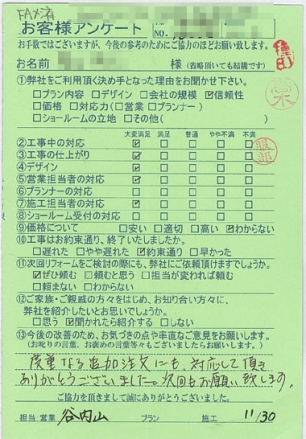 FAX済
お客様アンケート
NO.
お手数ではございますが、今後の参考のためにご協力のほどお願い致します。
お名前 様(省略頂いても結構です)
①弊社をご利用頂く決め手となった理由をお聞かせ下さい。
□プラン内容 □デザイン □会社の規模 ☑信頼性
□価格 □対応力(□営業 □プランナー)
□ショールームの立地 □その他( )
大変満足 満足 普通 やや不満 不満
②工事中の対応 ☑ □ □ □ □
③工事の仕上がり ☑ □ □ □ □
④デザイン ☑ □ □ □ □
⑤営業担当者の対応 ☑ □ □ □ □
⑥プランナーの対応 □ □ □ □ □
⑦施工担当者の対応 ☑ □ □ □ □
⑧ショールーム受付の対応 □ □ □ □ □
⑨価格について □安い □適切 □高い ☑わからない
⑩工事はお約束通り、終了いたしましたか。
□遅れた □やや遅れた ☑約束通り □早かった
⑪次回リフォームをご検討の際にも、弊社にご依頼頂けますでしょうか。
☑ぜひ頼む □頼むと思う □担当が変われば頼む
□頼まない □わからない
⑫ご家族・ご親戚の方々をはじめ、お知り合い方々に、
弊社を紹介したいとお思いでしょうか。
□思う ☑聞かれたら紹介する □しない
⑬今後の改善のため、お気づきの点や率直なご意見をお願いします。
(お叱りの言葉、お褒めの言葉等々もこちらにお願いいたします)
度重なる追加注文にも、対応して頂き
ありがとうございました。次回もお願い致します。
ご協力を頂きまして誠にありがとうございました。
担当:営業 谷内山 プラン 施工 11/30